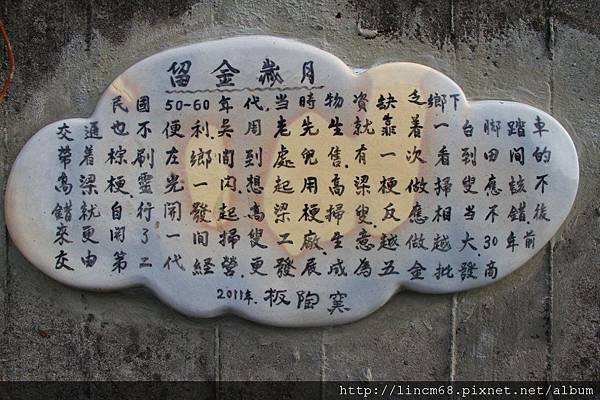 留金歲月
民國50-60年代,當時物資缺乏鄉下
交通也不便利,吳周老先生就靠着一台脚踏車
帶着棕刷左鄉間到處兜售,有一次看到田間的
高梁梗,靈光一閃想起用高梁梗做掃叟應該不
錯就自行開發起高梁梗掃叟反應相當不錯,後
來更開了一間掃叟工廠,生意越做越大,30年前
交由第二代經營,更發展成為五金批發商
2011年.板陶窯
http://lincm68.pixnet.net/album